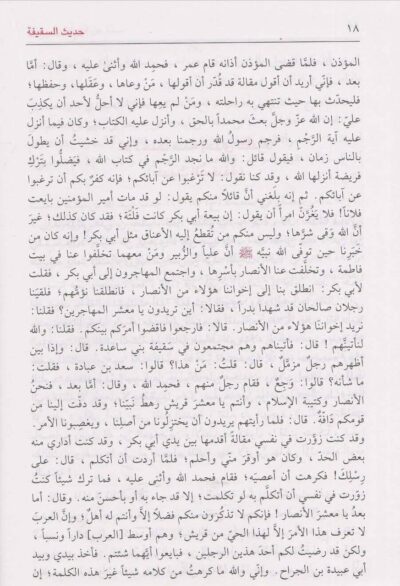 ١٨
حديث السقيفة
المؤذن ، فلمَّا قضى المؤذن أذانه قام عمر ، فحمد الله وأثنىٰ عليه ، وقال: أمَّا
بعد ، فإنّي أريد أن أقول مقالة قد قُدّر أن أقولها ، مَنْ وعاها ، وعَقَلها، وحفظها؛
فليحدّث بها حيث تنتهي به راحلته ، ومَنْ لم يعِها فإني لا أحلُّ لأحد أن يكذِبَ
عليّ: إن الله عزّ وجلّ بعث محمداً بالحق ، وأنزل عليه الكتاب؛ وكان فيما أنزل
عليه آية الرَّجْم ، فرجم رسولُ الله ورجمنا بعده ، وإني قد خشيتُ أن يطولَ
بالناس زمان ، فيقول قائل: والله ما نجد الرَّجْم في كتاب الله ، فيَضلُّوا بتَرْكِ
فريضة أنزلها الله ، وقد كنا نقول: لا تَرْغبوا عن آبائكم؛ فإنه كفرٌ بكم أن ترغبوا
عن آبائكم. ثم إنه بلَغني أنَّ قائلاً منكم يقول: لو قد مات أمير المؤمنين بايعت
فلاناً! فلا يغُرَّنَّ امرأً أن يقول: إن بيعة أبي بكر كانت فَلْتَة؛ فقد كان كذلك؛ غيرَ
أنَّ الله وَقى شرَّها؛ وليس منكم من تُقطعُ إليه الأعناق مثل أبي بكر! وإنه كان من
خَبَرِنا حين توفّى الله نبيَّه ﷺ أنَّ علياً والزُّبير ومَنْ معهما تخلَّفوا عنا في بيت
فاطمة ، وتخلَّفت عنا الأنصار بأسرِها ، واجتمع المهاجرون إلى أبي بكر ، فقلت
لأبي بكر: انطلق بنا إلى إخواننا هؤلاء من الأنصار ، فانطلقنا نؤمُّهم؛ فلقيَنا
رجلان صالحان قد شهدا بدراً ، فقالا: أين تريدون يا معشر المهاجرين؟ فقلنا:
نريد إخواننا هؤلاء من الأنصار. قالا: فارجعوا فاقضوا أمرَكم بينكم. فقلنا: والله
لنأتينَّهم ! قال: فأتيناهم وهم مجتمعون في سَقيفة بني ساعدة. قال: وإذا بين
أظهرهم رجلٌ مزمَّل ، قال: قلتُ: مَنْ هذا؟ قالوا: سعد بن عبادة ، فقلت:
ما شأنُه؟ قالوا: وَجِعٌ ، فقام رجلٌ منهم ، فحمد الله ، وقال: أمَّا بعد ، فنحنُ
الأنصار وكتيبة الإسلام ، وأنتم يا معشرَ قريش رهطُ نَبيّنا؛ وقد دفّت إلينا من
قومكم دَافّةٌ. قال: فلما رأيتهم يريدون أن يختزِلُونا من أصلِنا ، ويغصِبونا الأمر.
وقد كنت زوَّرت في نفسي مقالةً أقدمها بين يدي أبي بكر ، وقد كنت أداري منه
بعض الحدّ ، وكان هو أوقرَ منّي وأحلم؛ فلمَّا أردت أن أتكلم ، قال: على
رِسْلِك! فكرهت أن أعصيَه؛ فقام فحمد الله وأثنى عليه ، فما ترك شيئاً كنتُ
زوّرت في نفسي أن أتكلّم به لو تكلمت؛ إلا قد جاء به أو بأحسنَ منه. وقال: أما
بعدُ يا معشرَ الأنصار ! فإنكم لا تذكرُون منكم فضلاً إلَّا وأنتم له أهلٌ؛ وإنَّ العربَ
لا تعرف هذا الأمرَ إلَّا لهذا الحيِّ من قريش؛ وهم أوسط [العرب] داراً ونسباً ،
ولكن قد رضيتُ لكم أحدَ هذين الرجلين ، فبايعوا أيَّهما شئتم. فأخذ بيدي وبيد
أبي عبيدة بن الجراح. وإنّي والله ما كرهتُ من كلامه شيئاً غيرَ هذه الكلمة؛ إن